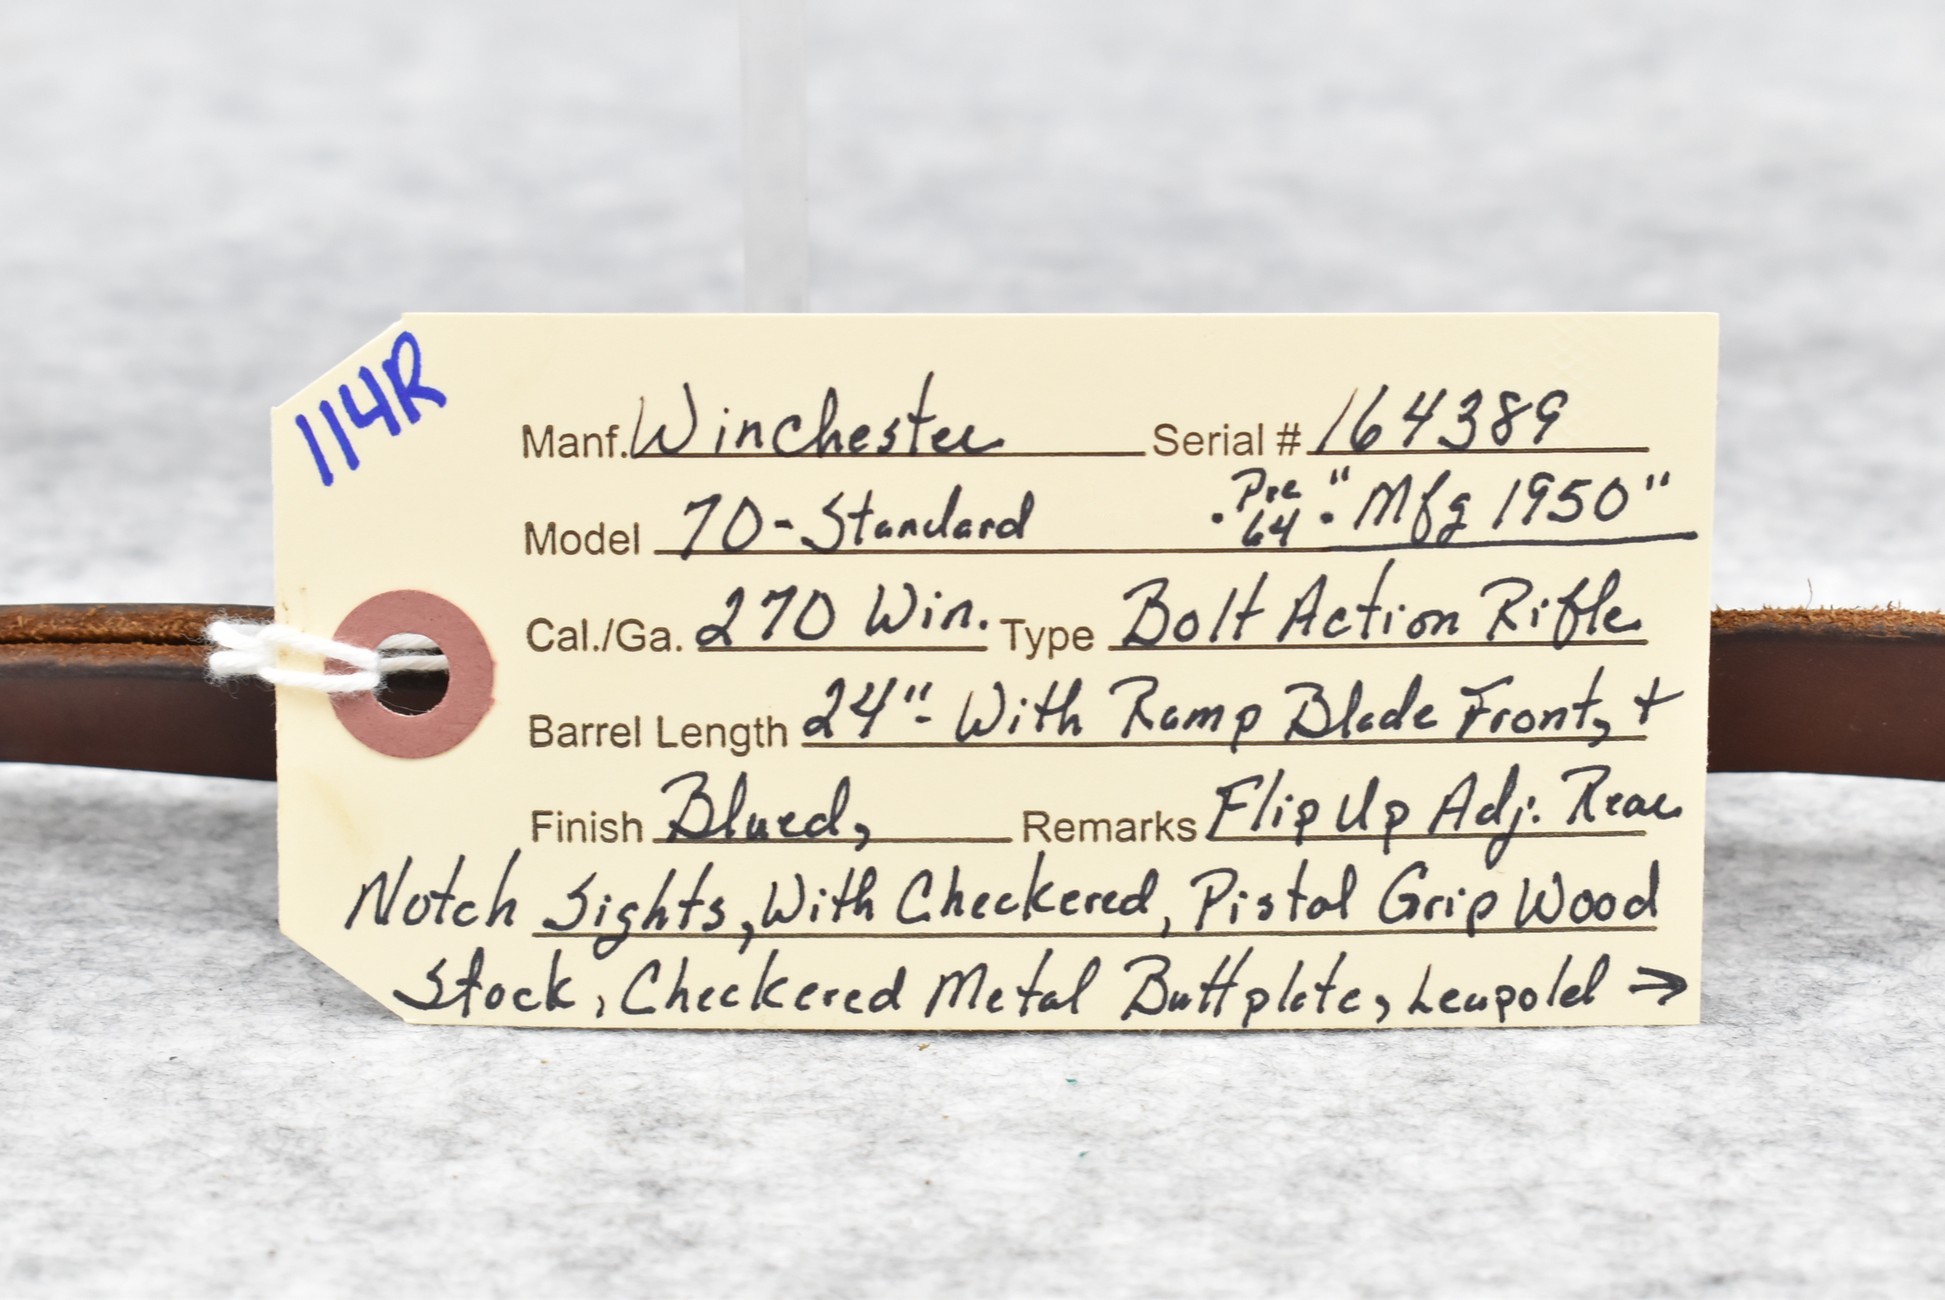 114R
Manf. Winchester Serial # 164389
Model 70-Standard • Pre 64 • "Mfg 1950"
Cal./Ga. 270 Win. Type Bolt Action Rifle
Barrel Length 24"- With Ramp Blade Front, +
Finish Blued, Remarks Flip Up Adj. Rear
Notch Sights, With Checkered, Pistol Grip Wood
Stock, Checkered Metal Buttplate, Leupold →